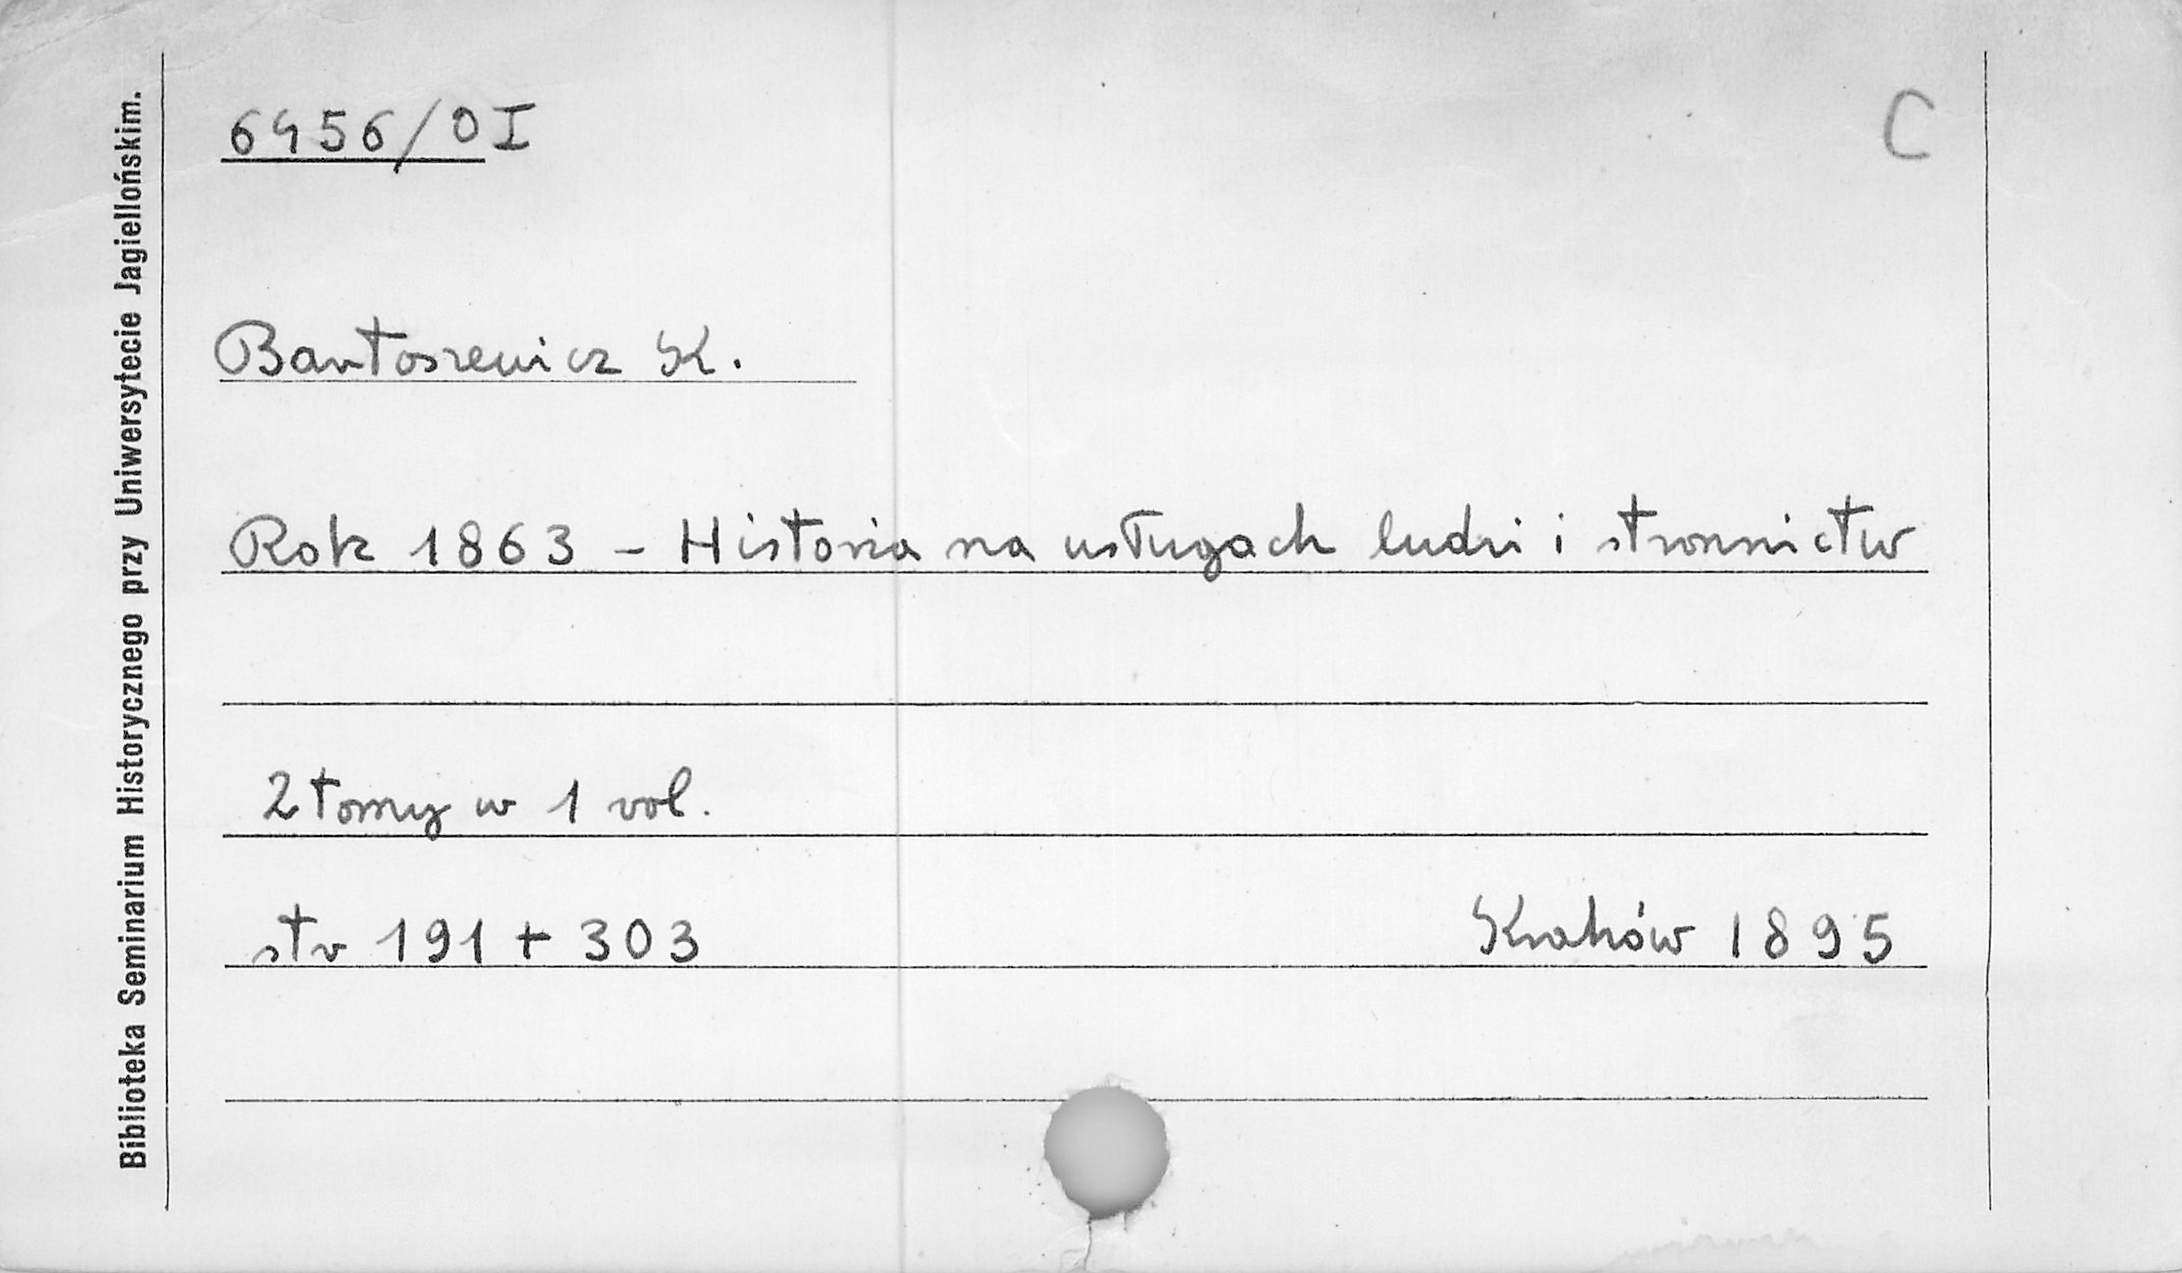 6456/0 I
C
Bartoszewicz K.
Rok 1863 - Historia na usługach ludzi i stronnictw
2 tomy w 1 vol.
str 191 + 303
Kraków 1895
Biblioteka Seminarium Historycznego przy Uniwersytecie Jagiellońskim.